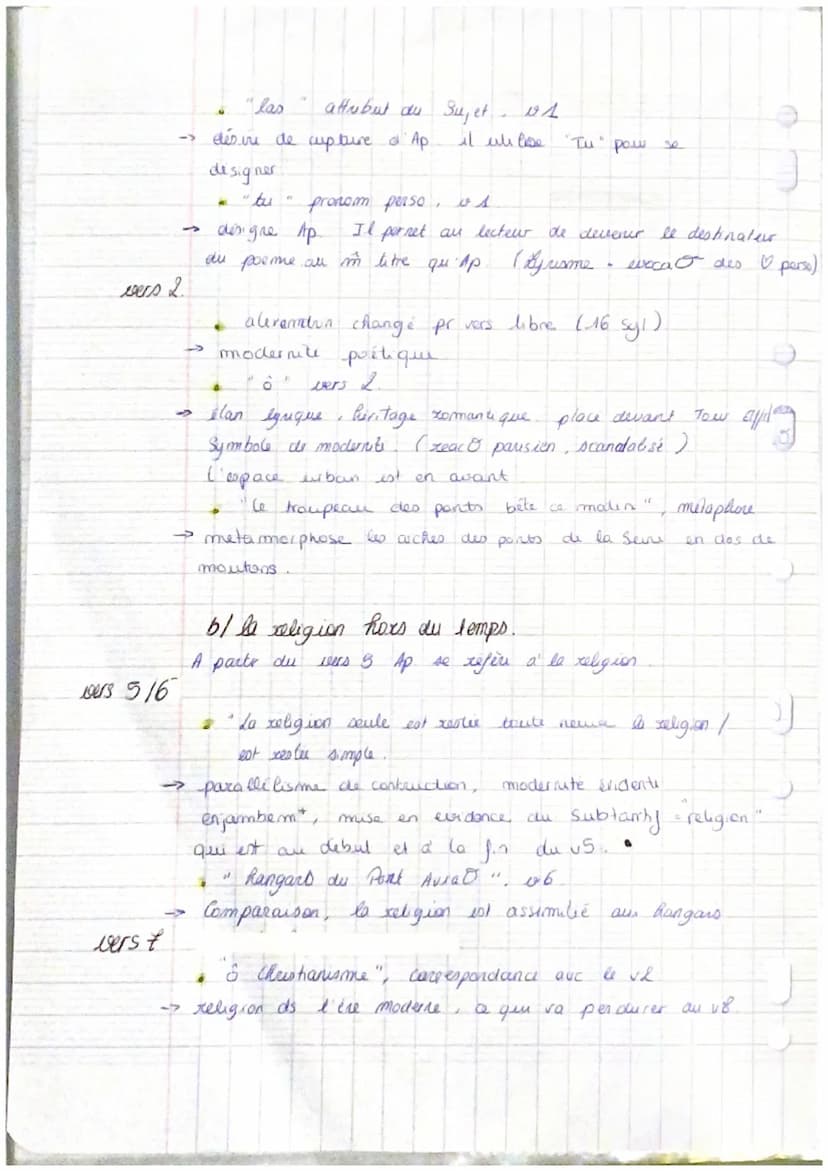 • "las" attribut du Sujet. v1
-> désire de rupture d'Ap. il utilise "Tu" pour se
designer
• "tu" pronom perso, v1
-> désigne Ap. Il permet au lecteur de devenir le destinateur
du poeme au m̂ titre qu'Ap. (lyrisme = evocaO des ♡ perso)
vers 2.
• alexandrin changé pr vers libre (16 syl)
-> modernité poétique
• "ô" vers 2.
-> élan lyrique, héritage romantique place devant Tour Eiffel
Symbole de modernité. (reacO parisien, scandalisé)
L'espace urbain est en avant
• "le troupeau des ponts bêle ce matin", métaphore
-> metamorphose les arches des ponts de la Seine en dos de
moutons.
b/ la religion hors du temps.
A partir du vers 5 Ap. se réfère à la religion.
vers 5/6
• "La religion seule est restée toute neuve la religion /
est restée simple.
-> parallélisme de contruction, modernité évidente
enjambemt, mise en evidence du Substantif = "religion"
qui est au début et à la fin du v5. •
• "hangars du Port AviaO". v6
-> Comparaison, la religion est assimilié aux hangars
vers 7
• "ô Christianisme", correspondance avc le v2
-> religion ds l'ère moderne, ce qui va perdurer au v8.